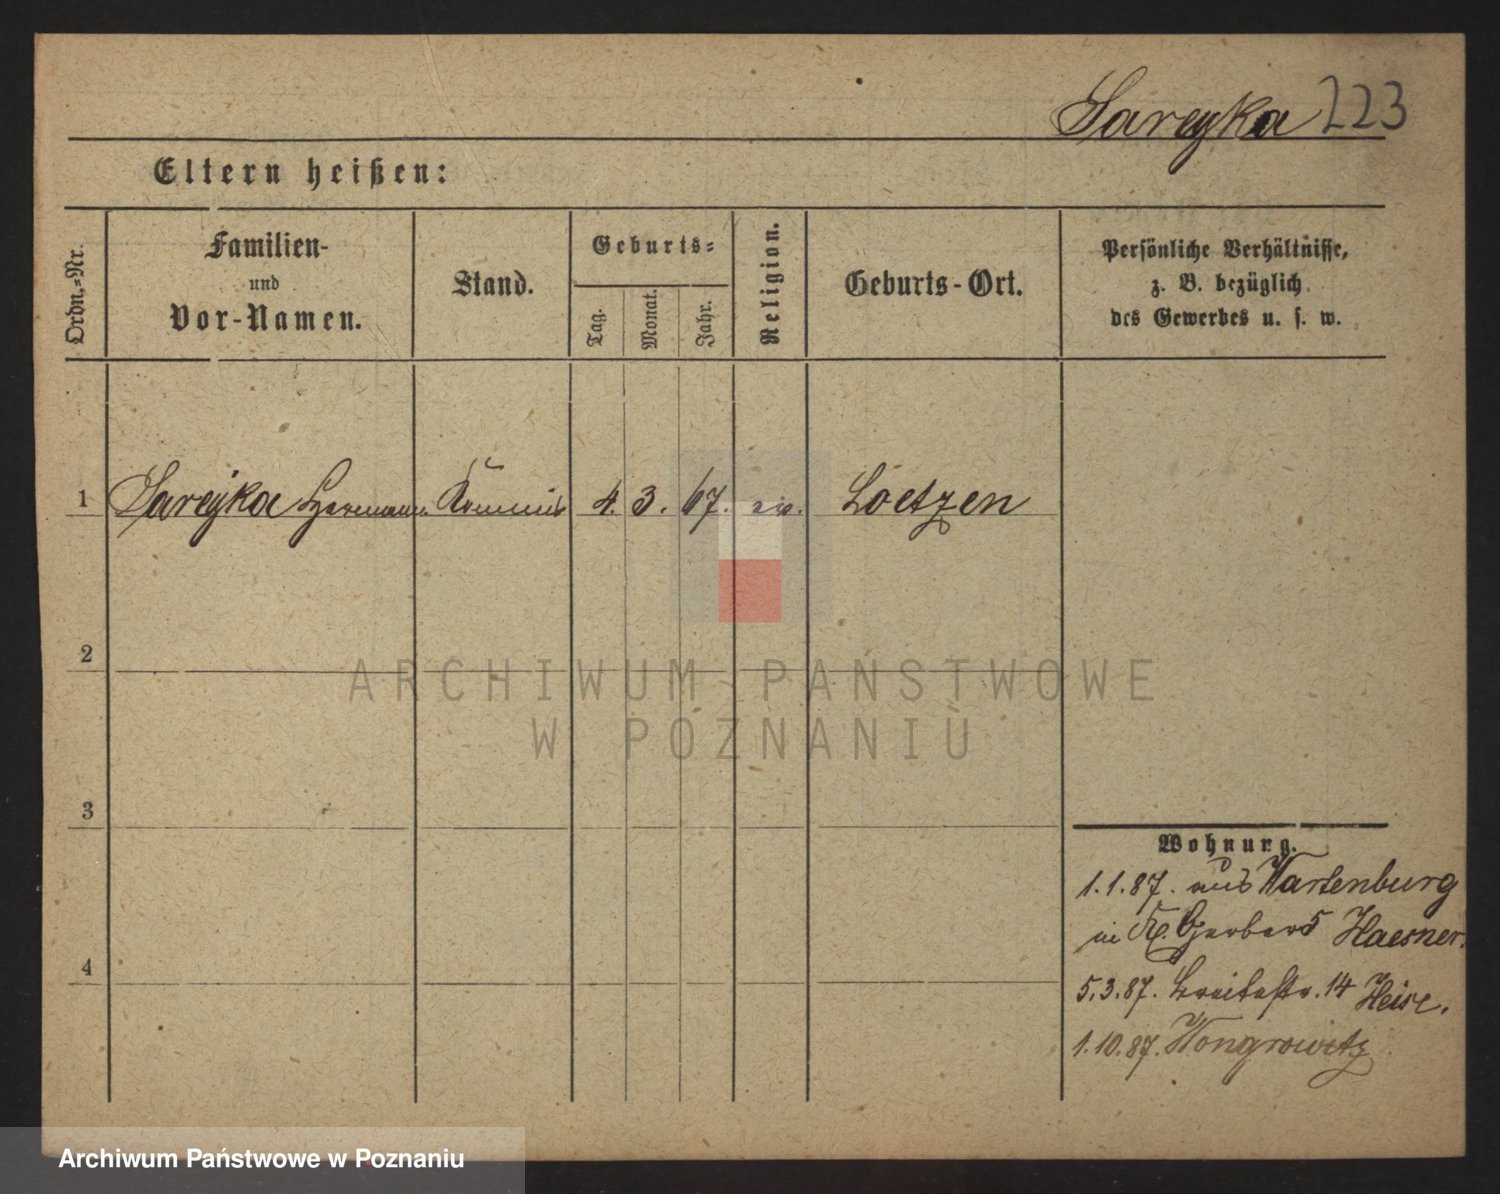 Sareyka 223
Eltern heißen:
Ordn.-Nr.
Familien-
und
Vor-Namen.
Stand.
Geburts-
Tag.
Monat.
Jahr.
Religion.
Geburts-Ort.
Persönliche Verhältnisse,
z. B. bezüglich
des Gewerbes u. s. w.
1 Sareyka Hermann Kommis 4. 3. 67. ev. Loetzen
2
3
4
Wohnung.
1.1.87. aus Wartenburg
in Kl. Gerberst Haesner.
5.3.87. Breitestr. 14 Heise.
1.10.87. Wongrowitz
ARCHIWUM PAŃSTWOWE
W POZNANIU
Archiwum Państwowe w Poznaniu